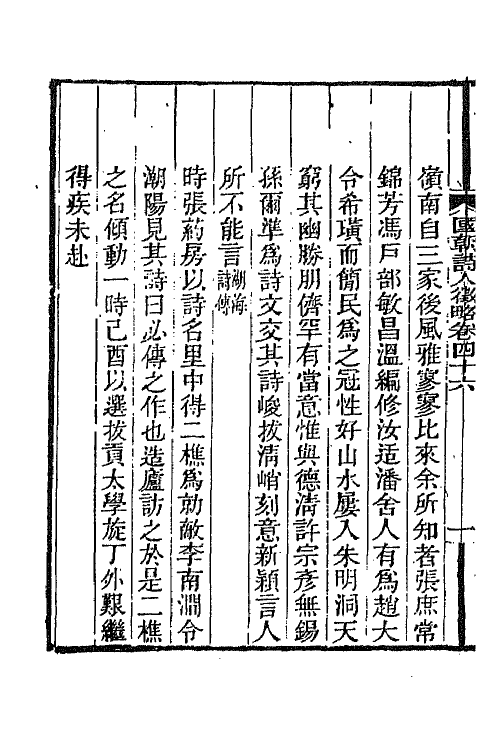 國朝詩人徵略卷四十六
一
嶺南自三家後風雅寥寥比來余所知者張庶常
錦芳馮戶部敏昌溫編修汝适潘舍人有為趙大
令希璜而簡民為之冠性好山水屢入朱明洞天
窮其幽勝朋儕罕有當意惟與德淸許宗彥無錫
孫爾準為詩文交其詩峻拔淸峭刻意新穎言人
所不能言湖海詩傳
時張葯房以詩名里中得二樵為勍敵李南澗令
潮陽見其詩曰必傳之作也造廬訪之於是二樵
之名傾動一時己酉以選拔貢太學旋丁外艱繼
得疾未赴